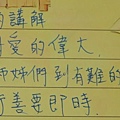 的講解
愛的偉大,
師姊們到有難的
行善要即時,